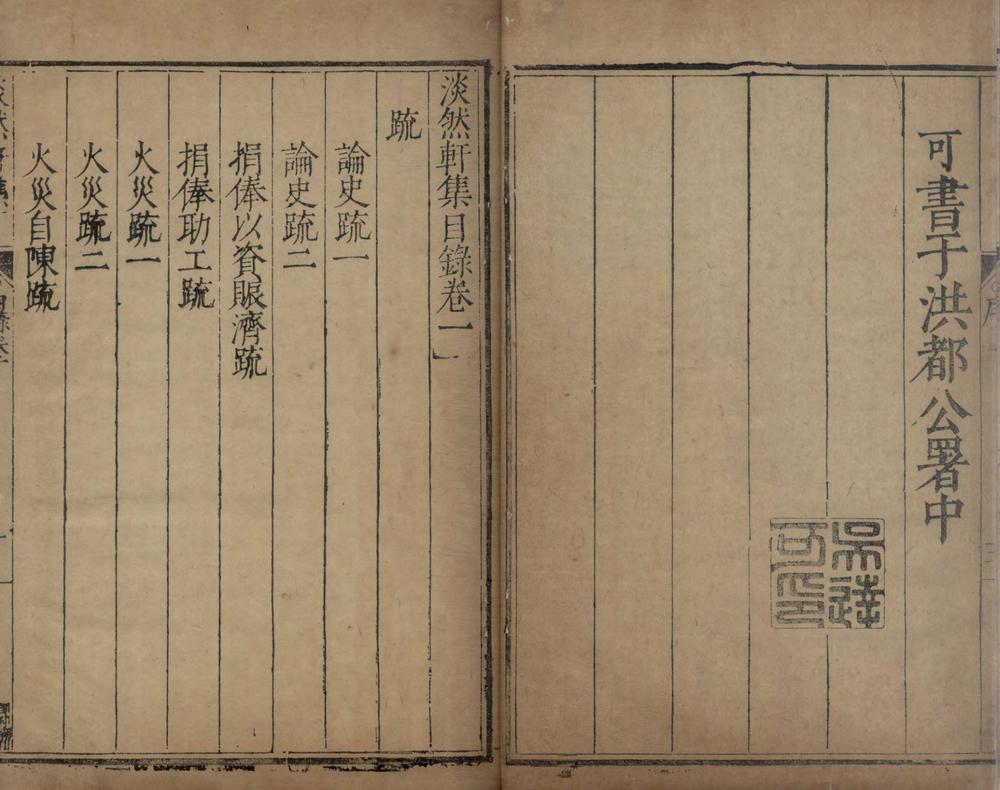 可書于洪都公署中
吳達可印
序
淡然軒集目錄卷一
疏
論史疏一
論史疏二
捐俸以資賑濟疏
捐俸助工疏
火災疏一
火災疏二
火災自陳疏